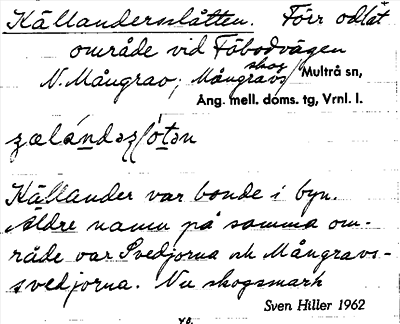 Källandersslåtten. Förr odlat
område vid Föbodvägen
N. Mångrav; Mångravs skog Multrå sn,
Ång. mell. doms. tg, Vrnl. l.
Källander var bonde i byn.
Äldre namn på samma om-
råde var Svedjorna och Mångravs-
svedjorna. Nu skogsmark
Sven Hiller 1962